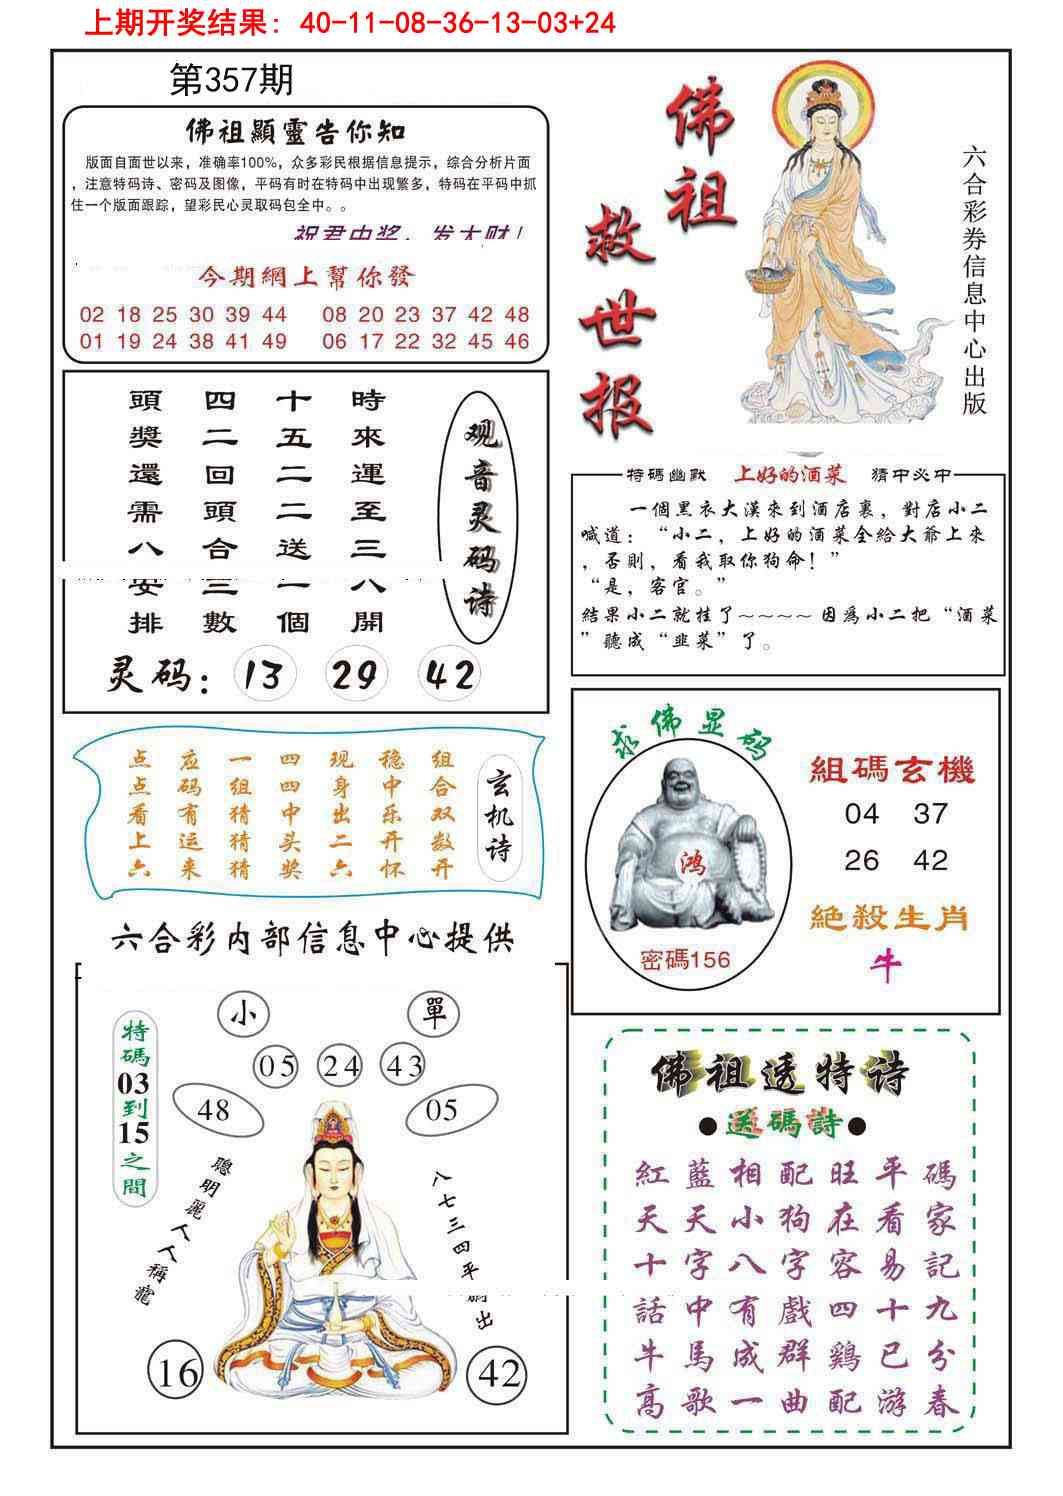 上期开奖结果: 40-11-08-36-13-03+24
第357期
佛祖顯靈告你知
版面自面世以来，准确率100%，众多彩民根据信息提示，综合分析片面
，注意特码诗、密码及图像，平码有时在特码中出现繁多，特码在平码中抓
住一个版面跟踪，望彩民心灵取码包全中。。
祝君中奖，发大财！
今期網上幫你發
02 18 25 30 39 44 08 20 23 37 42 48
01 19 24 38 41 49 06 17 22 32 45 46
佛祖
救世报
六合彩券信息中心出版
時來運至三八開
十五二二送一個
四二回頭合三數
頭獎還需八安排
观音灵码诗
灵码: 13 29 42
特碼幽默 上好的酒菜 猜中必中
一個黑衣大漢來到酒店裏，對店小二
喊道：“小二，上好的酒菜全給大爺上來
，否則，看我取你狗命！”
“是，客官。”
結果小二就挂了~~~~因爲小二把“酒菜
”聽成“韭菜”了。
玄机诗
组合双数开
稳中乐开怀
现身出二六
四四中头奖
一组猜猜猜
应码有运来
点点看上六
求佛显码
鸿
密碼156
組碼玄機
04 37
26 42
絕殺生肖
牛
六合彩内部信息中心提供
小 單
05 24 43
48 05
特碼03到15之間
聰明麗人人稱寵
八七三四平網出
16 42
佛祖透特诗
●送碼詩●
紅藍相配旺平碼
天天小狗在看家
十字八字容易記
話中有戲四十九
牛馬成群鷄已分
高歌一曲配游春